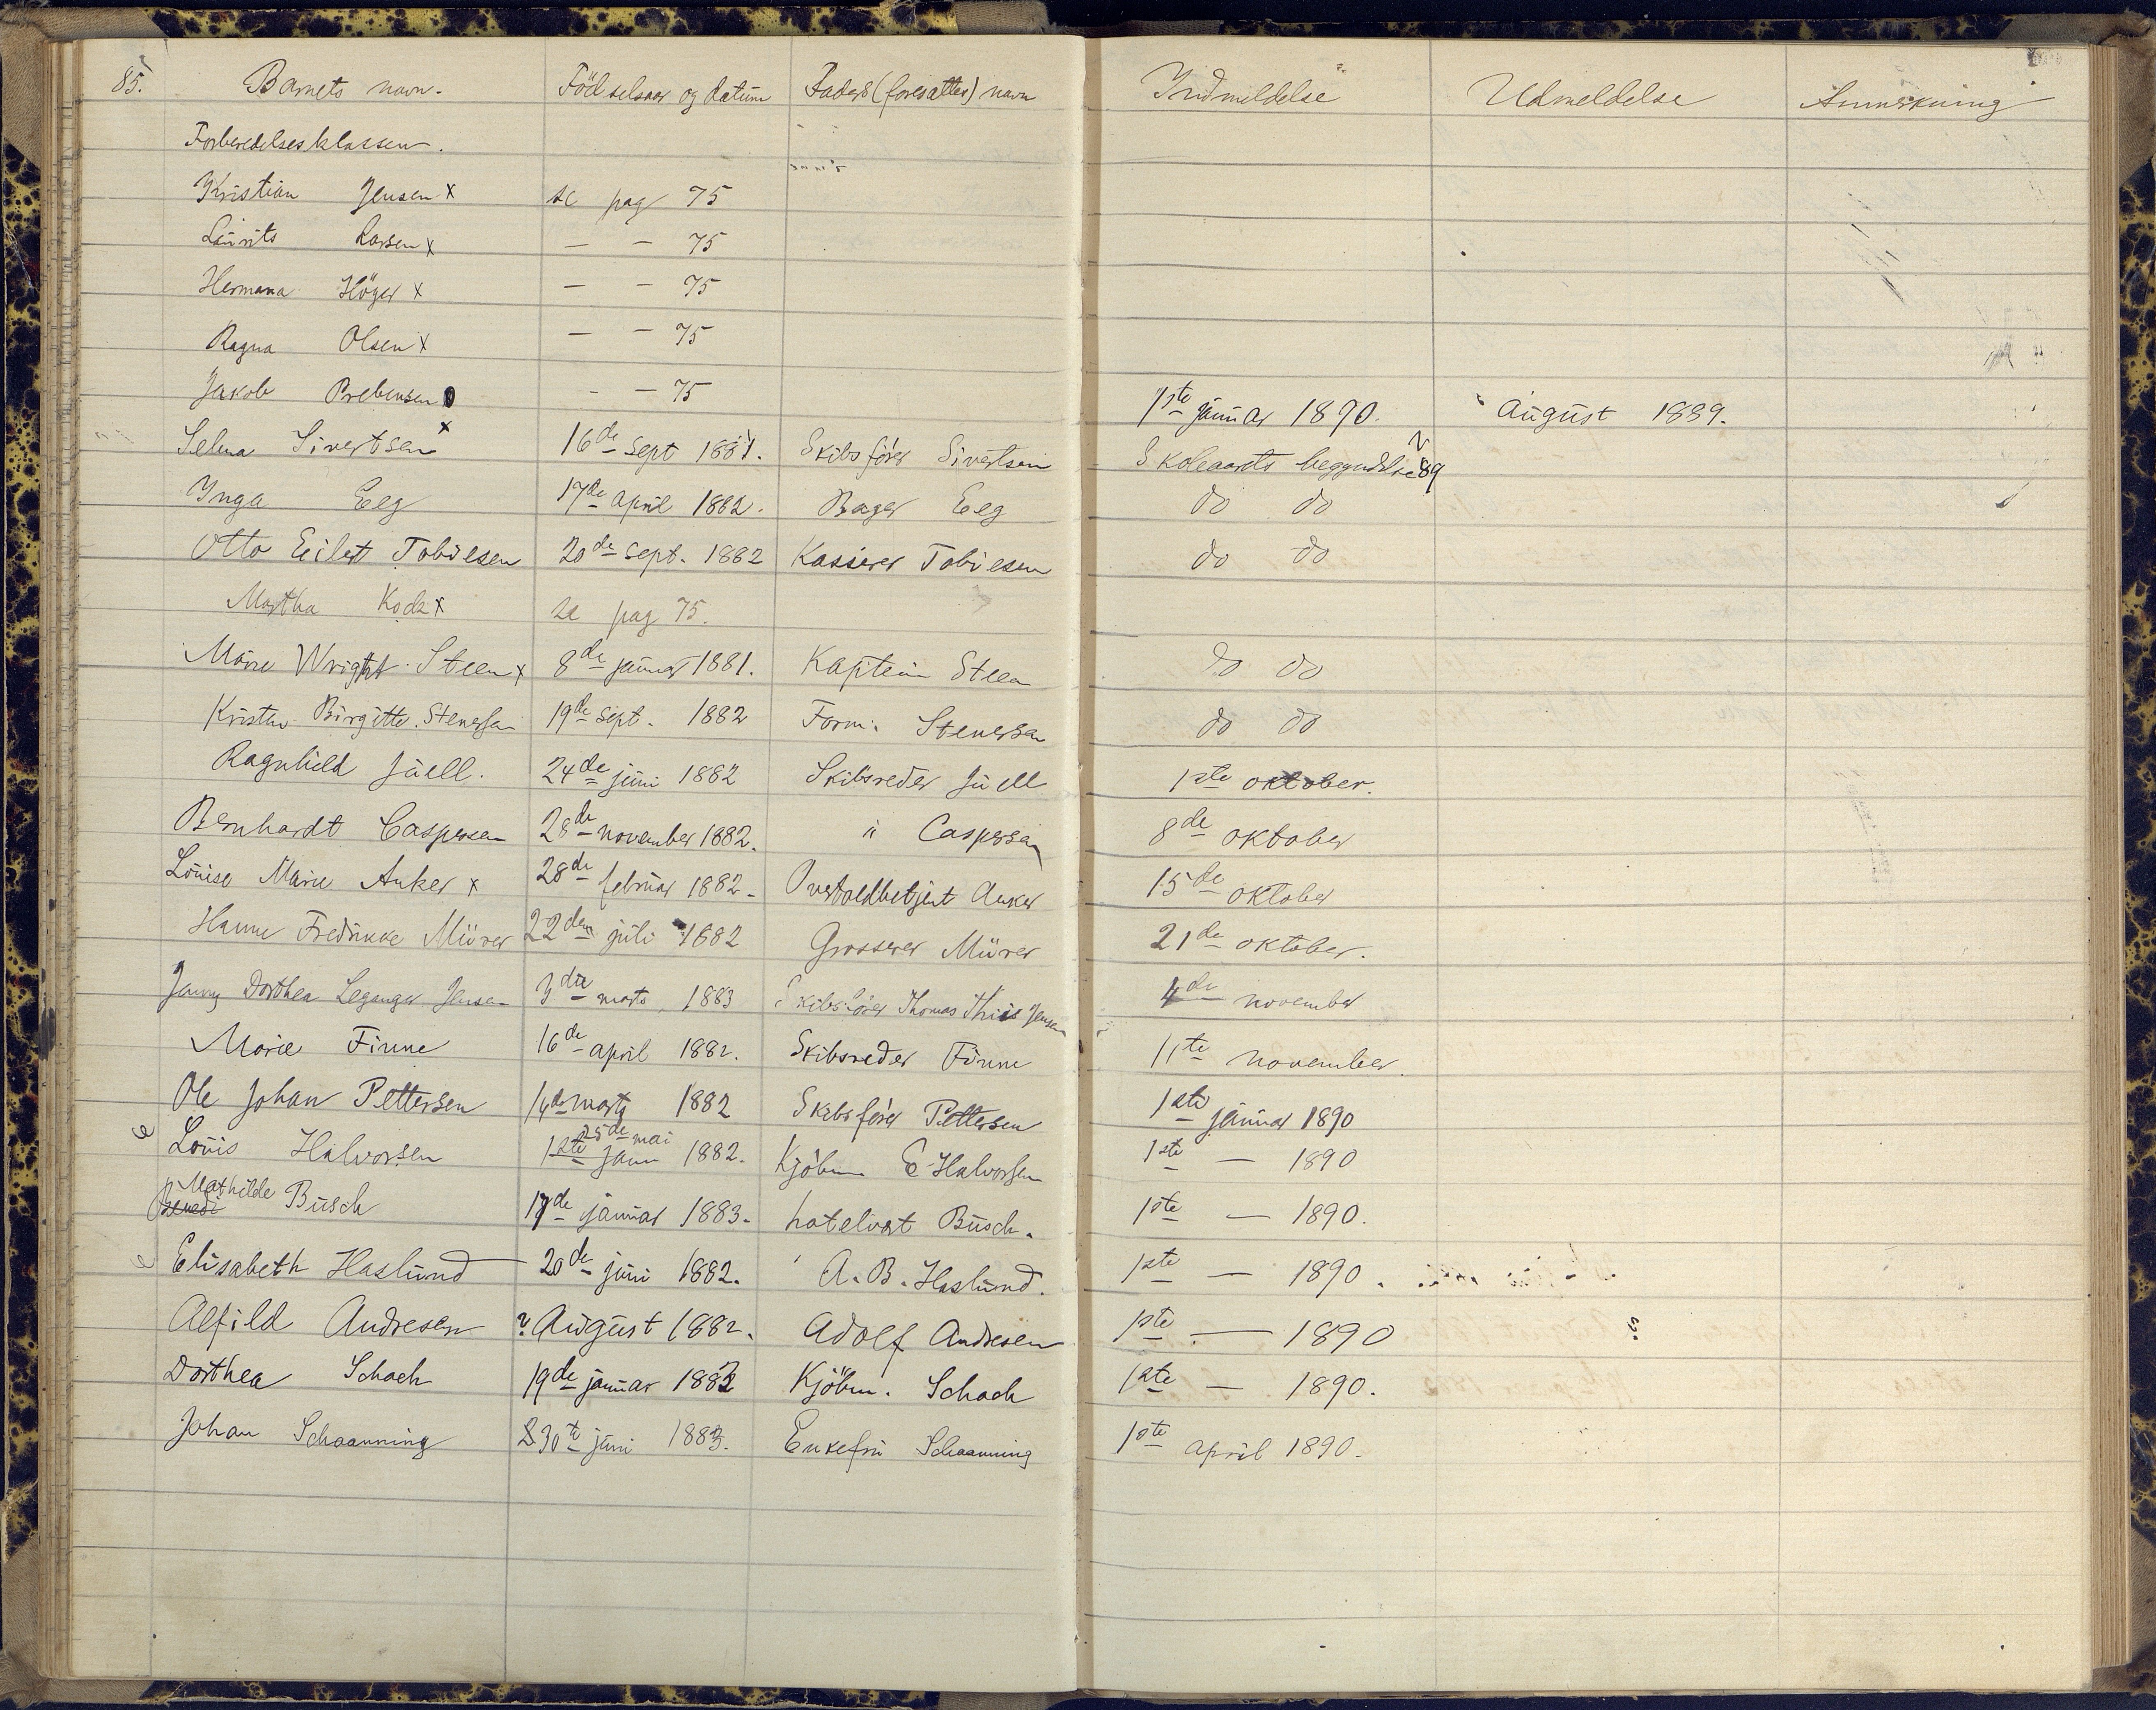 85. Barnets navn. Födselsaar og datum Faders (foresattes) navn Indmeldelse Udmeldelse Anmerkning
Forberedelsesklassen.
Kristian Jensen x se pag 75
Laurits Larsen x — — 75
Hermana Höyer x — — 75
Ragna Olsen x — — 75
Jakob Prebensen - — 75 1ste januar 1890. August 1889.
Selma Sivertsen x 16de sept 1881. Skibsförer Sivertsen Skoleaarets begyndelse 89
Inga Eeg 17de april 1882. Bager Eeg do do
Otto Eilert Tobiesen 20de sept. 1882 Kasserer Tobiesen do do
Martha Kock x se pag 75.
Marie Wright Steen x 8de januar 1881. Kaptein Steen do do
Kristine Birgitte Stenersen 19de sept. 1882 Form. Stenersen do do
Ragnhild Juell. 24de juni 1882 Skibsreder Juell 1ste oktober.
Bernhardt Caspersen 28de november 1882. " Caspersen 8de oktober
Louise Marie Anker x 28de februar 1882. Overtoldbetjent Anker 15de oktober
Hanne Fredrikke Mürer 22den juli 1882 Grosserer Mürer 21de oktober.
Jenny Dorthea Leganger Jensen 3die marts 1883 Skibsförer Thomas Thiis Jensen 4de november
Marie Finne 16de april 1882. Skibsreder Finne 11te november.
Ole Johan Pettersen 14de marts 1882 Skibsförer Pettersen 1ste januar 1890
25de mai
Louis Halvorsen 1ste janu 1882. Kjöbm. E. Halvorsen 1ste — 1890
Mathilde
Benedi Busch 17de januar 1883. hotelvert Busch. 1ste — 1890.
Elisabeth Haslund 20de juni 1882. A. B. Haslund. 1ste — 1890.
Alfild Andresen ? August 1882. Adolf Andresen 1ste — 1890
Dorthea Schach 19de januar 1882 Kjöbm. Schach 1ste — 1890.
Johan Schaanning 30te juni 1883. Enkefru Schaanning 1ste april 1890.